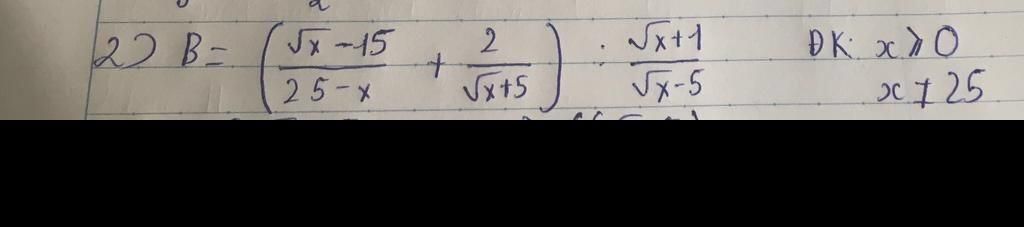 2) B = ( (√x - 15)/(25 - x) + 2/(√x + 5) ) : (√x + 1)/(√x - 5) ĐK: x ≥ 0
x ≠ 25